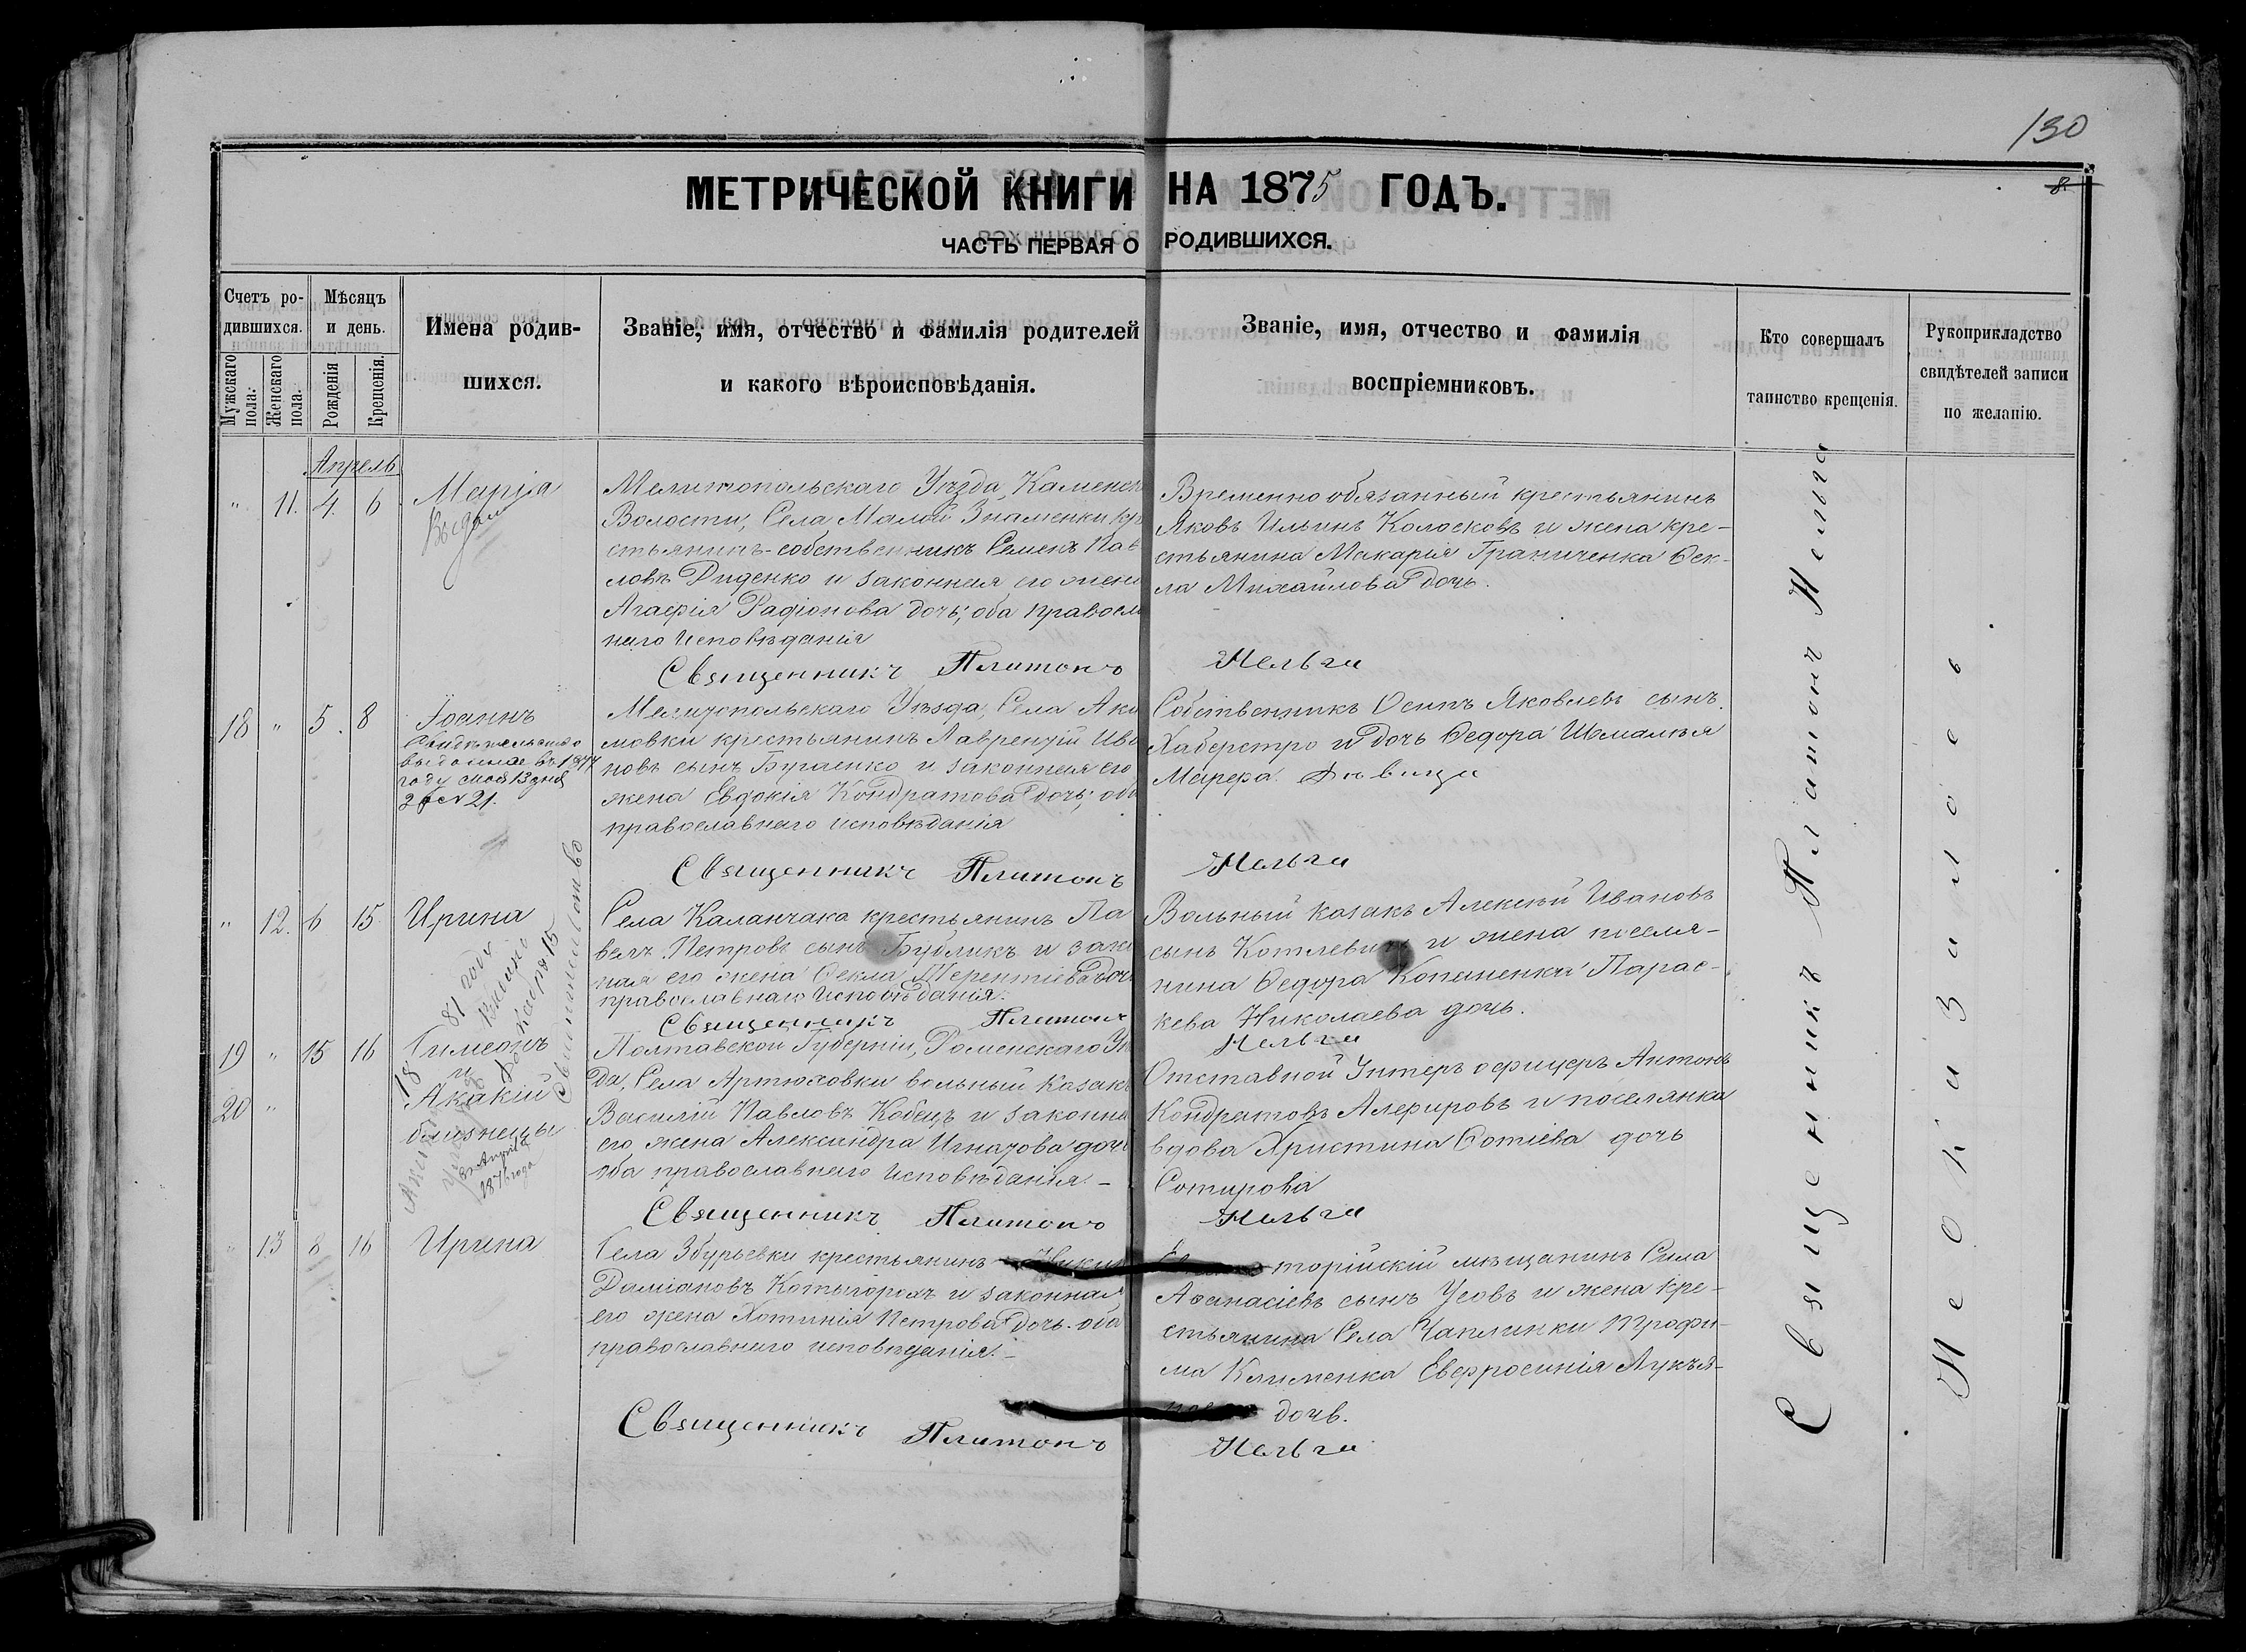 130
8
МЕТРИЧЕСКОЙ КНИГИ НА 1875 ГОДЪ.
ЧАСТЬ ПЕРВАЯ О РОДИВШИХСЯ.
Счетъ ро-
дившихся.
Мужскаго
пола.
Женскаго
пола.
Мѣсяцъ
и день.
Рожденія
Крещенія.
Имена родив-
шихся.
Званіе, имя, отчество и фамилія родителей
и какого вѣроисповѣданія.
Званіе, имя, отчество и фамилія
воспріемниковъ.
Кто совершалъ
таинство крещенія.
Рукоприкладство
свидѣтелей записи
по желанію.
Апрель
" 11. 4. 6
Марія
Мелитопольскаго Уѣзда, Каменск
Волости, Села Малой Знаменки кре
стьянинъ-собственникъ Семенъ Пав
ловъ Диденко и законная его жена
Агафія Радіонова дочь; оба правосла
наго исповѣданія
Священникъ Платонъ
Временно обязанный крестьянинъ
Яковъ Ильинъ Колосковъ и жена кре-
стьянина Макарія Граниченка Ѳек-
ла Михайлова дочь.
18 " 5. 8
Іоаннъ
Свидѣтельство
выдано въ 1877
году 13 дня
№ 21.
Мелитопольскаго Уѣзда, Села Аки
мовки крестьянинъ Лаврентій Ива
новъ сынъ Бураенко и законная его
жена Евдокія Кондратова дочь; оба
православнаго исповѣданія
Священникъ Платонъ
Собственникъ Осипъ Яковлевъ сынъ
и дочь Ѳедора Шмалѣя
Марфа Дѣвица
" 12. 6 15.
Ирина
Села Каланчака крестьянинъ Па
велъ Петровъ сынъ Бубликъ и закон
ная его жена Ѳекла Терентіева доч
православнаго исповѣданія.
Священникъ Платонъ
Вольный казакъ Алексѣй Ивановъ
сынъ и жена поселя-
нина Ѳедора Копаненка Парас-
кева Николаева дочь.
19 " 15 16
20 "
Симеонъ
и
Акакій
близнецы
1881 году
Свидѣтельство
Апрѣля
1876 года
Полтавской Губерніи, Роменскаго Уѣ
да, Села Артюховки вольный казакъ
Василій Павловъ Кобецъ и законна
его жена Александра Игнатова дочь
оба православнаго исповѣданія. -
Священникъ Платонъ
Отставной Унтеръ офицеръ Антонъ
Кондратовъ Алефировъ и поселянка
вдова Христина Фотіева дочь
Сотирова
" 13 8 16
Ирина
Села Збурьевки крестьянинъ
Даміановъ и законная
его жена Хотинія Петрова дочь. оба
православнаго исповѣданія. -
Священникъ Платонъ
торійскій мѣщанинъ Сила
Афанасіевъ сынъ Усовъ и жена кре-
стьянина Села Чаплинки Трофи-
ма Клименка Евфросинія Лукья-
нова дочь.
Священникъ Платонъ
Неокизилоевъ